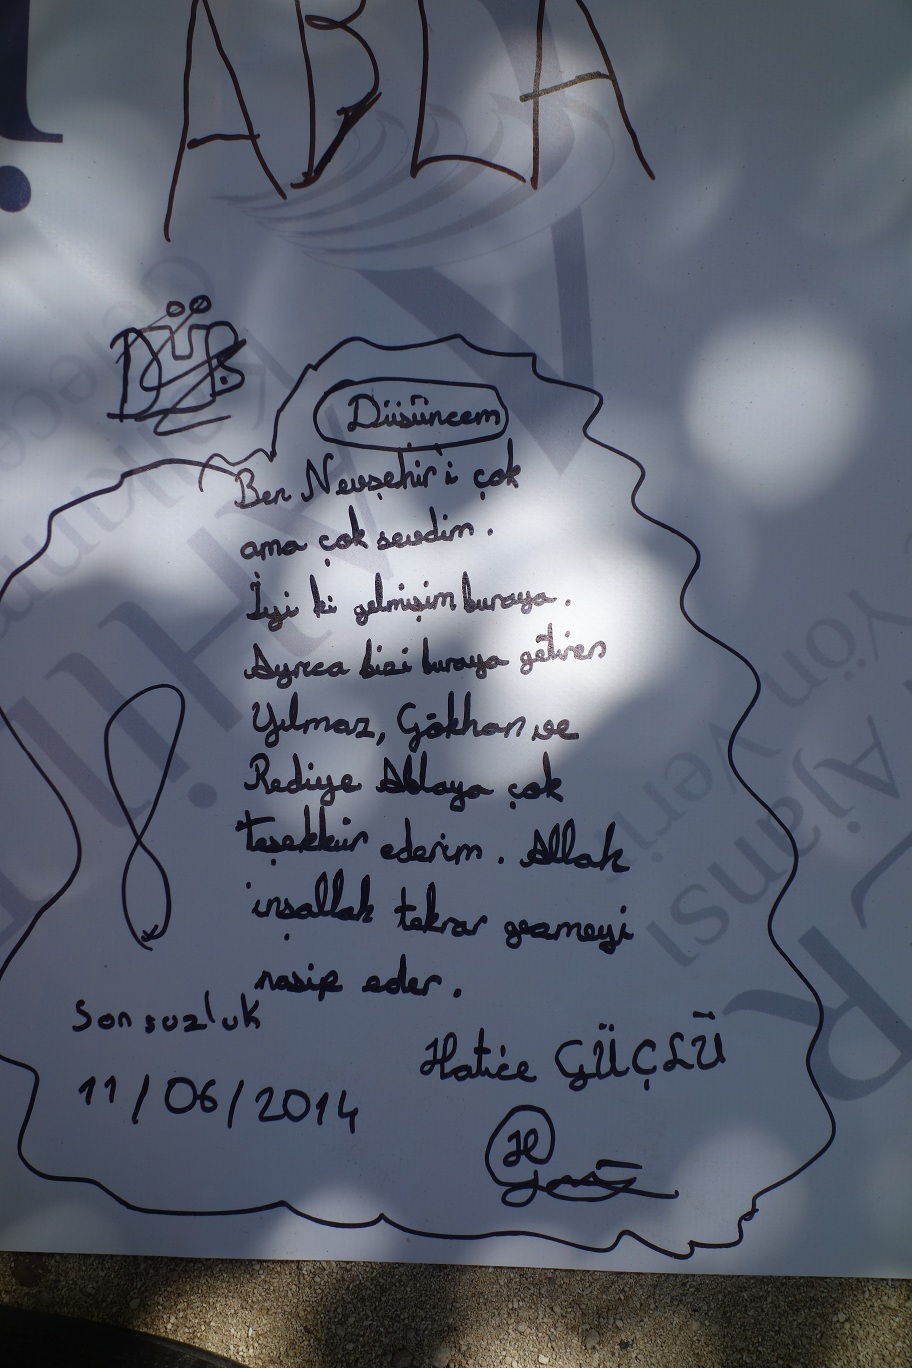 ABLA
Düşüncem
Ben Nevşehir'i çok
ama çok sevdim.
İyi ki gelmişim buraya.
Ayrıca bizi buraya getiren
Yılmaz, Gökhan ve
Rediye Ablaya çok
teşekkür ederim. Allah
inşallah tekrar gezmeyi
nasip eder.
Sonsuzluk
Hatice GÜÇLÜ
11/06/2014
H
Yön Verir
Ajansı